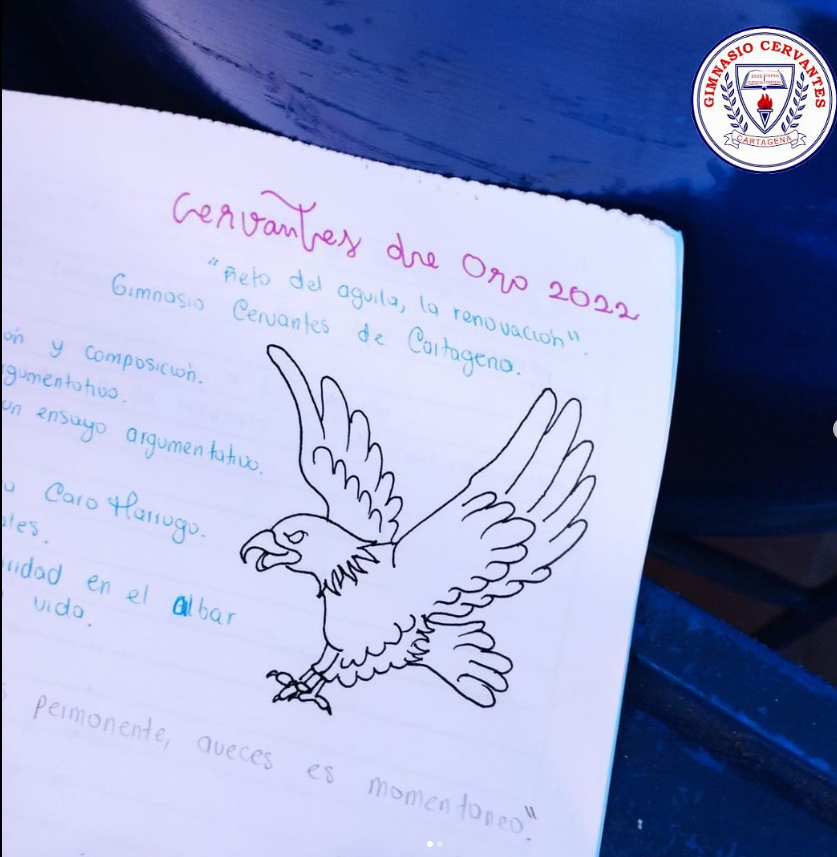 GIMNASIO CERVANTES
CARTAGENA
Cervantes de Oro 2022
"Reto del aguila, la renovación".
Gimnasio Cervantes de Cartagena.
ón y composición.
gumentativo.
un ensayo argumentativo.
Caro Harrugo.
ales.
ridad en el albar
vida.
permonente, aveces es momentaneo".